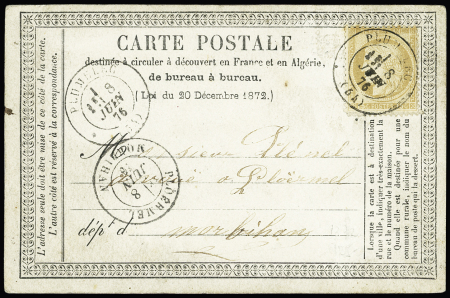 CARTE POSTALE
destinée à circuler à découvert en France et en Algérie,
de bureau à bureau.
(Loi du 20 Décembre 1872.)
L'adresse seule doit être mise de ce côté de la carte.
L'autre côté est réservé à la correspondance.
PLUMELEC
1
8
JUIN
76
PLUM
1
8
JUIN
76
PLOËRMEL
MORBIHAN
8
JUIN
Monsieur
à Ploërmel
dép't d
morbihan
Lorsque la carte est à destination
d'une ville, indiquer très-exactement la
rue et le numéro de la maison.
Quand elle est destinée pour une
commune rurale, indiquer le nom du
bureau de poste qui la dessert.